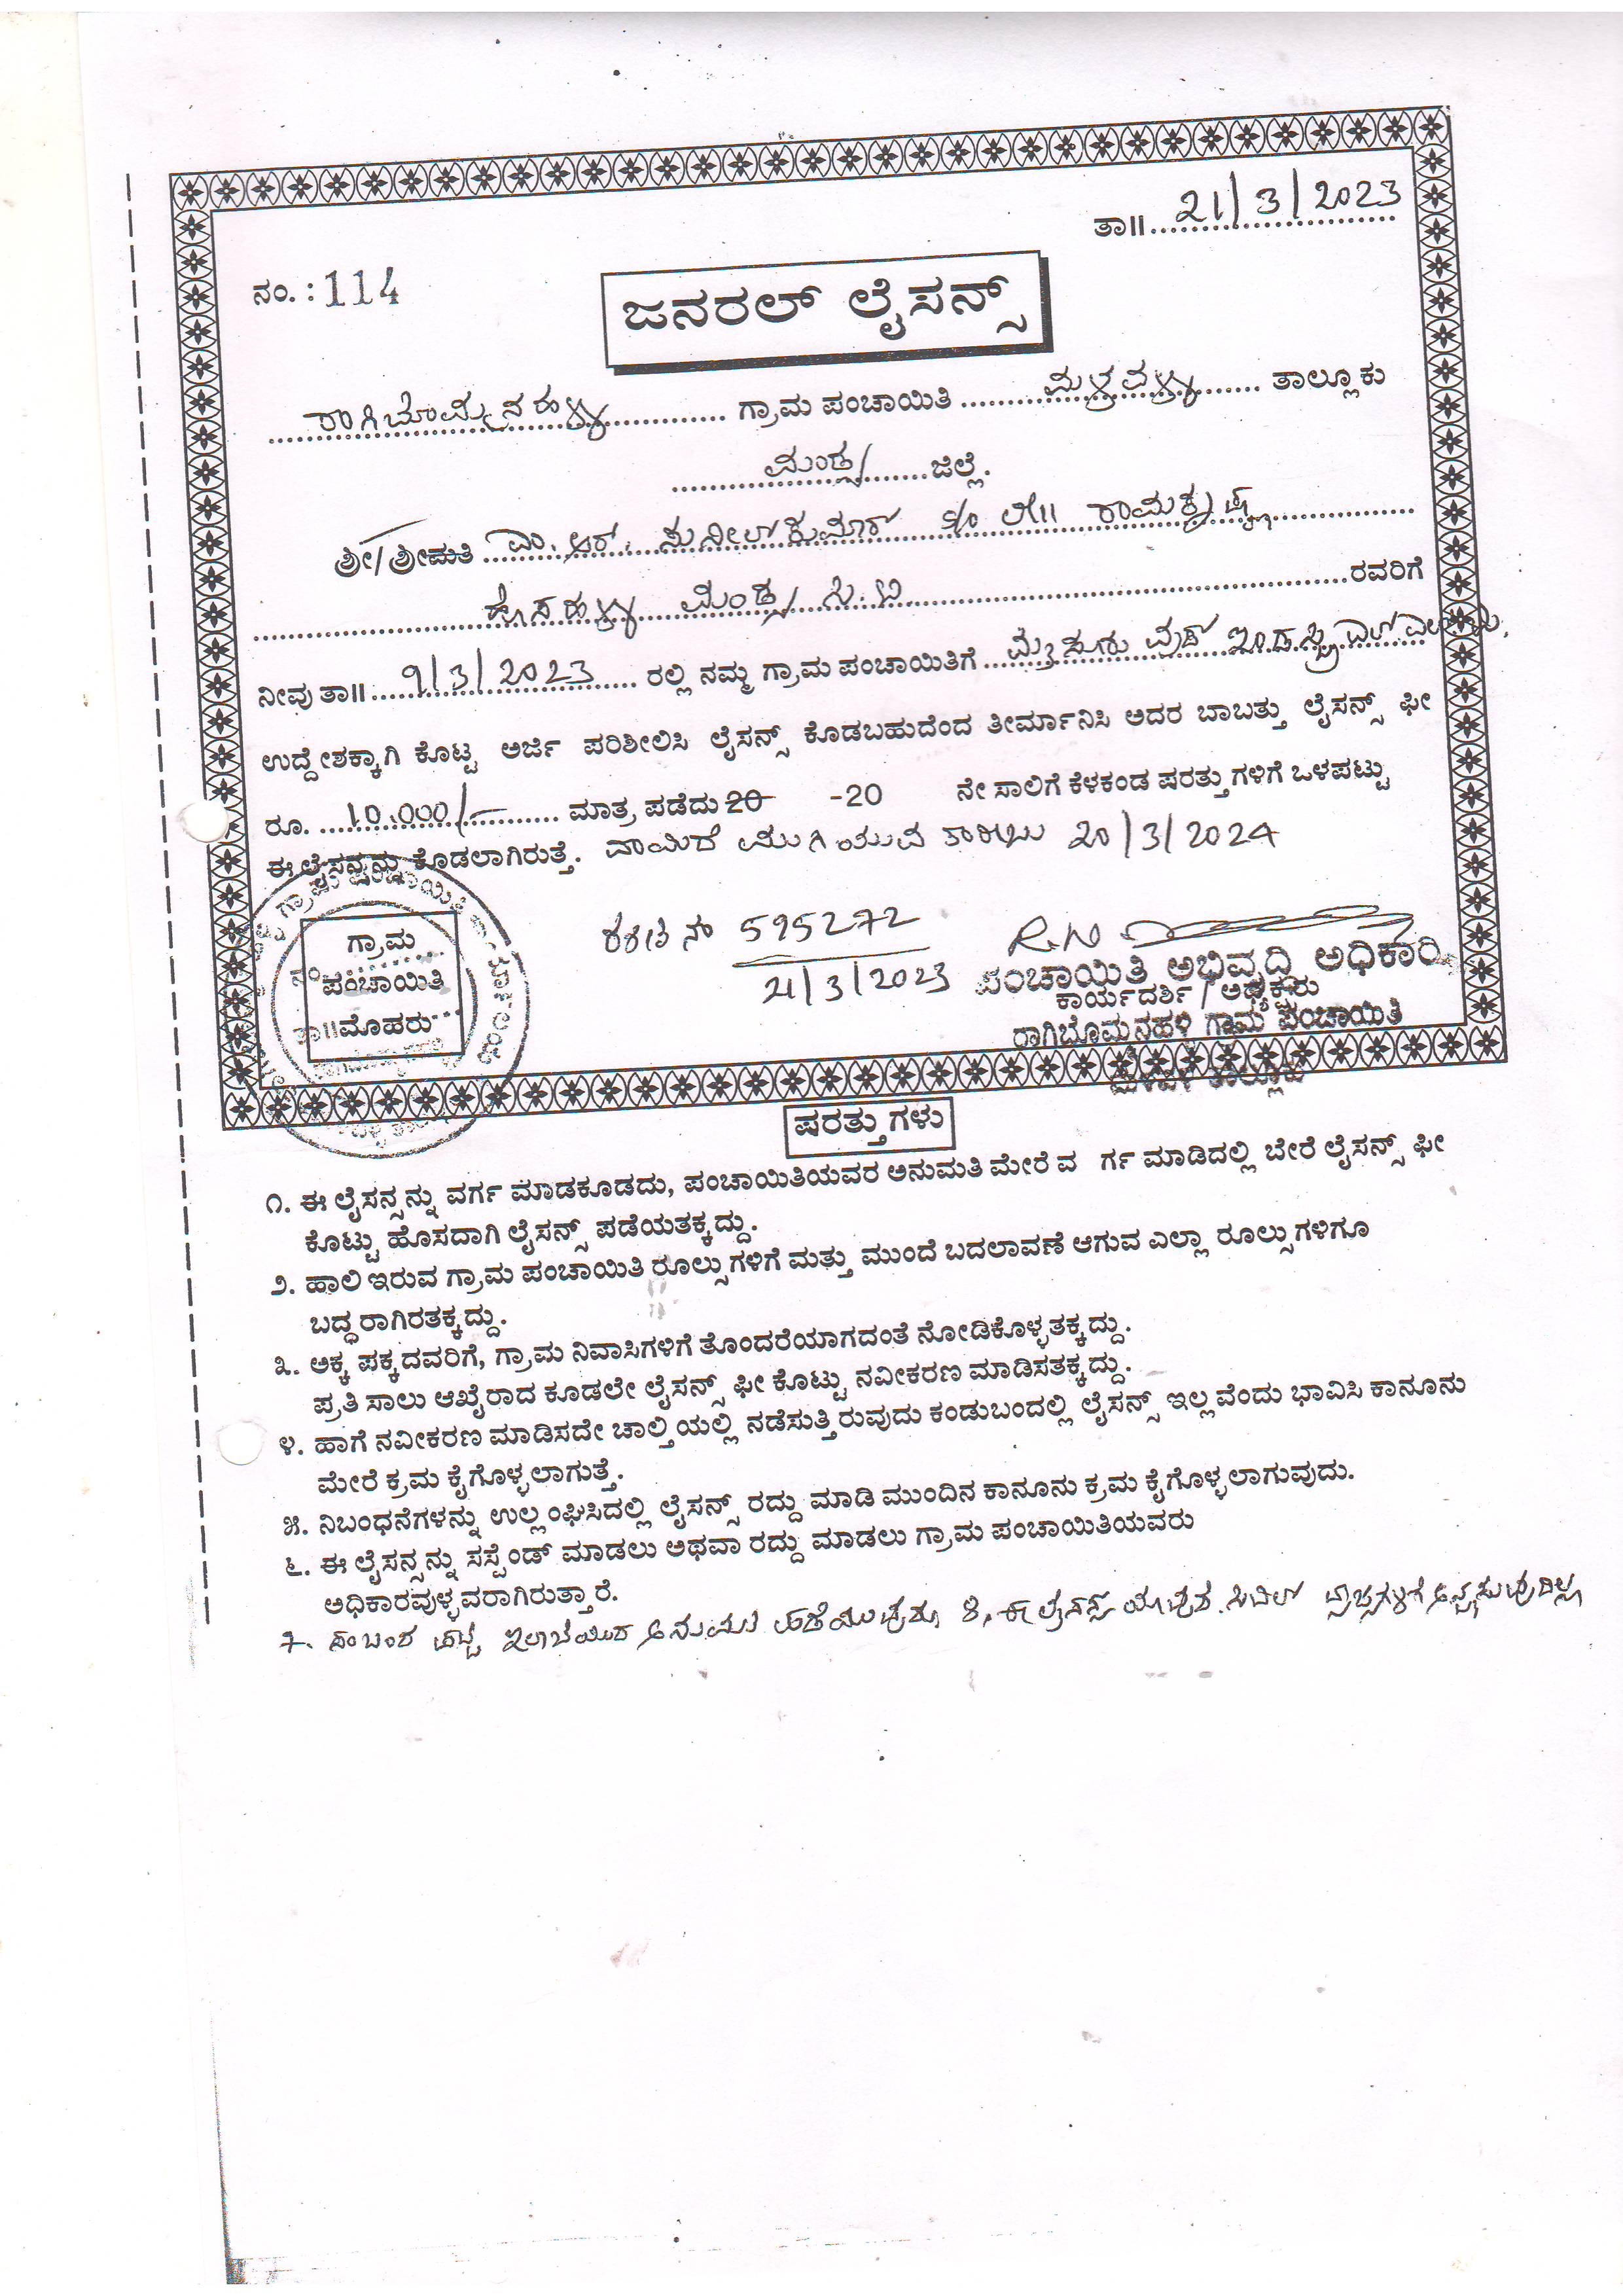 ತಾ॥ 21/3/2023
ನಂ. : 114
ಜನರಲ್ ಲೈಸನ್ಸ್
ರಾಗಿಬೊಮ್ಮನಹಳ್ಳಿ ಗ್ರಾಮ ಪಂಚಾಯಿತಿ ಮಳವಳ್ಳಿ ತಾಲ್ಲೂಕು
ಮಂಡ್ಯ ಜಿಲ್ಲೆ.
ಶ್ರೀ/ಶ್ರೀಮತಿ ಎಂ.ಆರ್. ಸುನೀಲ್ ಕುಮಾರ್ S/o ಲೇ॥ ರಾಮಕೃಷ್ಣ
ಹೊಸಹಳ್ಳಿ ಮಂಡ್ಯ ರವರಿಗೆ
ನೀವು ತಾ॥ 9/3/2023 ರಲ್ಲಿ ನಮ್ಮ ಗ್ರಾಮ ಪಂಚಾಯಿತಿಗೆ ಮೈಸೂರು ವುಡ್ ಇಂಡಸ್ಟ್ರಿ
ಉದ್ದೇಶಕ್ಕಾಗಿ ಕೊಟ್ಟ ಅರ್ಜಿ ಪರಿಶೀಲಿಸಿ ಲೈಸನ್ಸ್ ಕೊಡಬಹುದೆಂದ ತೀರ್ಮಾನಿಸಿ ಅದರ ಬಾಬತ್ತು ಲೈಸನ್ಸ್ ಫೀ
ರೂ. 10.000/- ಮಾತ್ರ ಪಡೆದು 20 -20 ನೇ ಸಾಲಿಗೆ ಕೆಳಕಂಡ ಷರತ್ತುಗಳಿಗೆ ಒಳಪಟ್ಟು
ಈ ಲೈಸನ್ಸನ್ನು ಕೊಡಲಾಗಿರುತ್ತೆ. ವಾಯಿದೆ ಮುಗಿಯುವ ತಾರೀಖು 20/3/2024
ಗ್ರಾಮ
ಪಂಚಾಯಿತಿ
ಮೊಹರು
ರಶೀದಿ ನಂ 595272
21/3/2023
R.N
ಪಂಚಾಯಿತಿ ಅಭಿವೃದ್ಧಿ ಅಧಿಕಾರಿ
ಕಾರ್ಯದರ್ಶಿ / ಅಧ್ಯಕ್ಷರು
ರಾಗಿಬೊಮ್ಮನಹಳ್ಳಿ ಗ್ರಾಮ ಪಂಚಾಯಿತಿ
ಮಳವಳ್ಳಿ ತಾಲ್ಲೂಕು
ಷರತ್ತುಗಳು
೧. ಈ ಲೈಸನ್ಸನ್ನು ವರ್ಗ ಮಾಡಕೂಡದು, ಪಂಚಾಯಿತಿಯವರ ಅನುಮತಿ ಮೇರೆ ವ ರ್ಗ ಮಾಡಿದಲ್ಲಿ ಬೇರೆ ಲೈಸನ್ಸ್ ಫೀ
ಕೊಟ್ಟು ಹೊಸದಾಗಿ ಲೈಸನ್ಸ್ ಪಡೆಯತಕ್ಕದ್ದು.
೨. ಹಾಲಿ ಇರುವ ಗ್ರಾಮ ಪಂಚಾಯಿತಿ ರೂಲ್ಸುಗಳಿಗೆ ಮತ್ತು ಮುಂದೆ ಬದಲಾವಣೆ ಆಗುವ ಎಲ್ಲಾ ರೂಲ್ಸುಗಳಿಗೂ
ಬದ್ಧರಾಗಿರತಕ್ಕದ್ದು.
೩. ಅಕ್ಕ ಪಕ್ಕದವರಿಗೆ, ಗ್ರಾಮ ನಿವಾಸಿಗಳಿಗೆ ತೊಂದರೆಯಾಗದಂತೆ ನೋಡಿಕೊಳ್ಳತಕ್ಕದ್ದು.
ಪ್ರತಿ ಸಾಲು ಆಖೈರಾದ ಕೂಡಲೇ ಲೈಸನ್ಸ್ ಫೀ ಕೊಟ್ಟು ನವೀಕರಣ ಮಾಡಿಸತಕ್ಕದ್ದು.
೪. ಹಾಗೆ ನವೀಕರಣ ಮಾಡಿಸದೇ ಚಾಲ್ತಿಯಲ್ಲಿ ನಡೆಸುತ್ತಿರುವುದು ಕಂಡುಬಂದಲ್ಲಿ ಲೈಸನ್ಸ್ ಇಲ್ಲವೆಂದು ಭಾವಿಸಿ ಕಾನೂನು
ಮೇರೆ ಕ್ರಮ ಕೈಗೊಳ್ಳಲಾಗುತ್ತೆ.
೫. ನಿಬಂಧನೆಗಳನ್ನು ಉಲ್ಲಂಘಿಸಿದಲ್ಲಿ ಲೈಸನ್ಸ್ ರದ್ದು ಮಾಡಿ ಮುಂದಿನ ಕಾನೂನು ಕ್ರಮ ಕೈಗೊಳ್ಳಲಾಗುವುದು.
೬. ಈ ಲೈಸನ್ಸನ್ನು ಸಸ್ಪೆಂಡ್ ಮಾಡಲು ಅಥವಾ ರದ್ದು ಮಾಡಲು ಗ್ರಾಮ ಪಂಚಾಯಿತಿಯವರು
ಅಧಿಕಾರವುಳ್ಳವರಾಗಿರುತ್ತಾರೆ.
7. ಸಂಬಂಧ ಪಟ್ಟ ಇಲಾಖೆಯಿಂದ ಅನುಮತಿ ಪಡೆಯುವುದು 8. ಈ ಲೈಸನ್ಸ್ ಯಾವುದೇ ಸಿವಿಲ್ ವ್ಯಾಜ್ಯಗಳಿಗೆ ಅನ್ವಯಿಸುವುದಿಲ್ಲ